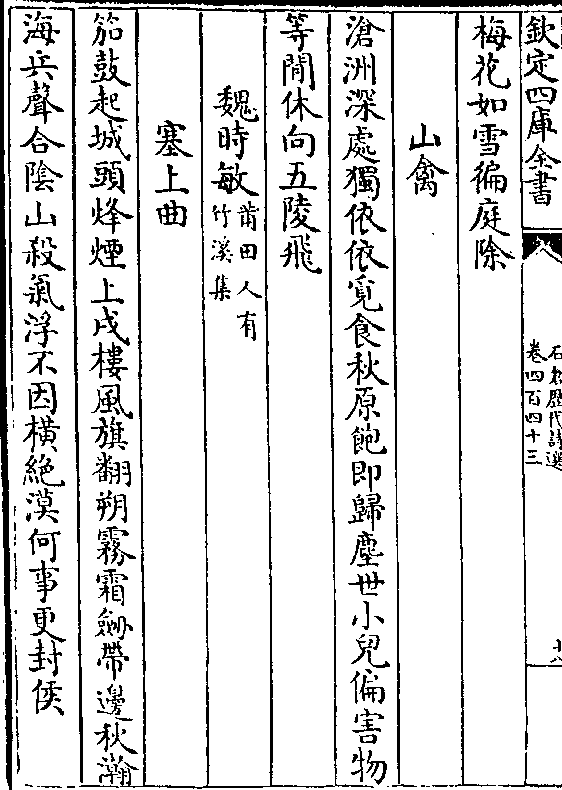 欽定四庫全書
石倉歴代詩選
卷四百四十三
十八
梅花如雪徧庭除
山禽
滄洲深處獨依依覓食秋原飽即歸塵世小兒偏害物
等閒休向五陵飛
魏時敏
莆田人有
竹溪集
塞上曲
笳鼓起城頭烽煙上戍樓風旗翻朔霧霜劒帶邊秋瀚
海兵聲合陰山殺氣浮不因横絶漠何事更封侯